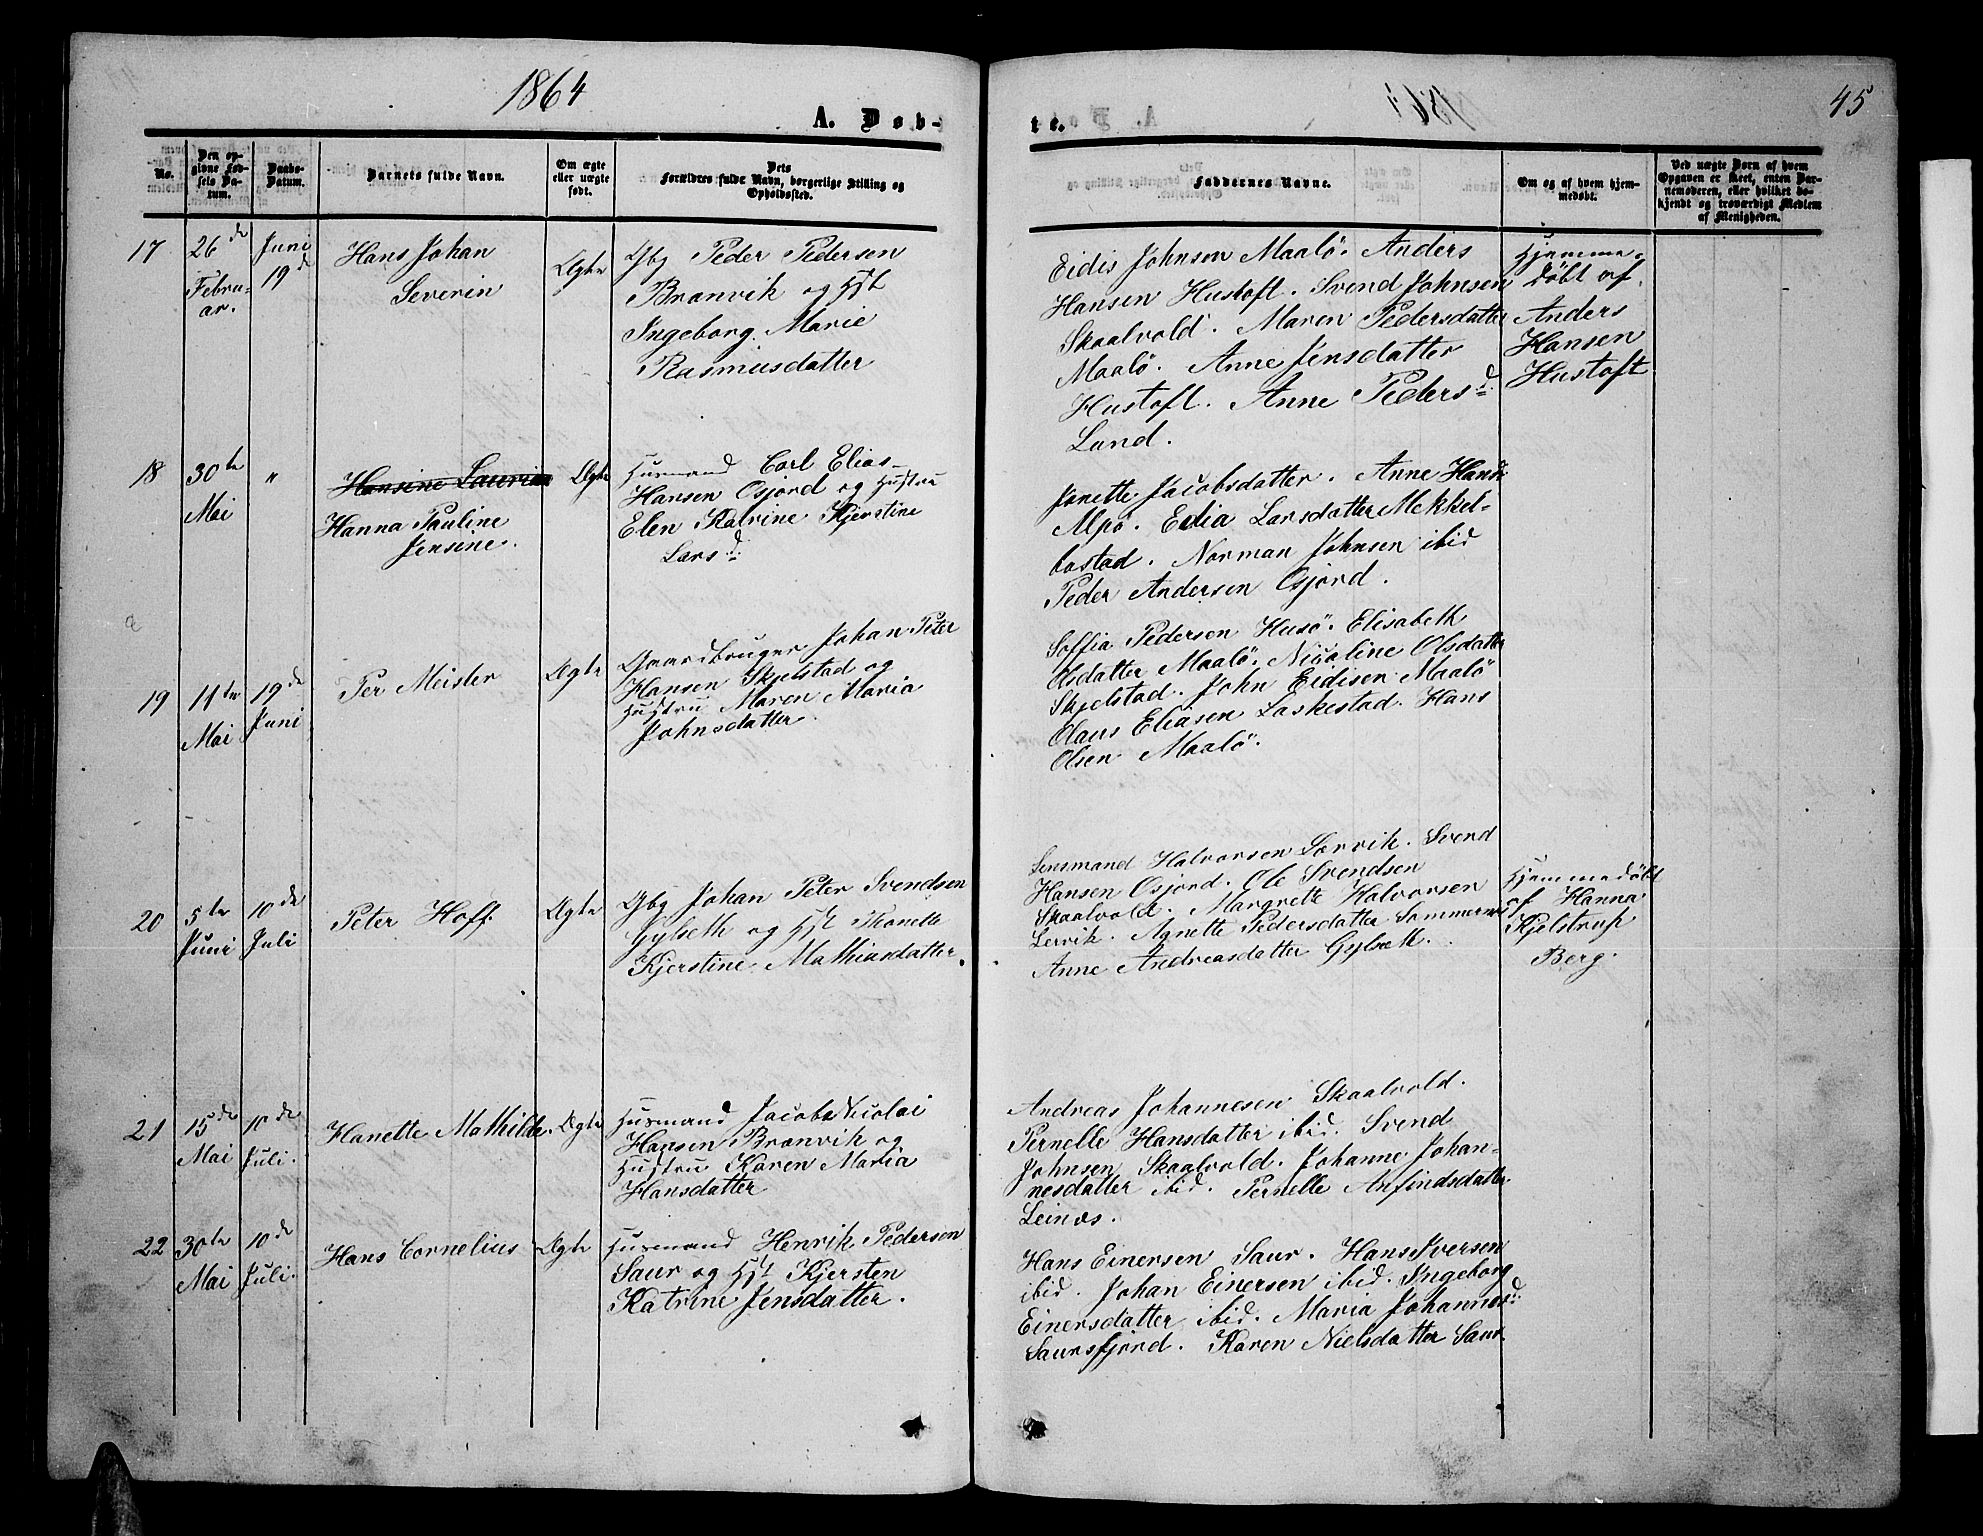 1864
A. Døb-
te.
45
No.
Den op-
givne Fød-
sels Da-
tum.
Daabs-
Datum.
Barnets fulde Navn.
Om ægte
eller uægte
født.
Dets
Forældres fulde Navn, borgerlige Stilling og
Opholdssted.
Faddernes Navne.
Om og af hvem hjem-
medøbt.
Ved uægte Børn af hvem
Opgaven er skeet, enten Bar-
nemoderen, eller hvilket be-
kjendt og troværdigt Medlem
af Menigheden.
17
26de
Febru-
ar.
Juni
19de
Hans Johan
Severin
Ægte
Gbg Peder Pedersen
Brænvik og Hst
Ingeborg Marie
Rasmusdatter
Eidis Johnsen Maalö. Anders
Hansen Hustoft. Svend Johnsen
Skaalvold. Maren Pedersdatter
Maalö. Anne Jensdatter
Hustoft. Anne Pedersd.
Lund.
Hjemme-
döbt af
Anders
Hansen
Hustoft
18
30te
Mai
"
Hansine Laurine
Hanna Pauline
Jensine.
Ægte
Husmand Carl Elias
Hansen Osjord og Hustru
Elen Katrine Kjerstine
Larsd.
Janette Jacobsdatter. Anne Hansd.
Alpö. Edia Larsdatter Mekkel-
bostad. Norman Johnsen ibid
Peder Andersen Osjord.
19
11te
Mai
19de
Juni
Per Meisler
Ægte
Gaardbruger Johan Peter
Hansen Skjelstad og
Hustru Maren Maria
Johnsdatter.
Soffia Pedersen Husö. Elisabeth
Olsdatter Maalö. Nicoline Olsdatter
Skjelstad. John Eidisen Maalö
Olaus Eliasen Laskestad. Hans
Olsen Maalö.
20
5te
Juni
10de
Juli
Peter Hoff.
Ægte
Gbg Johan Peter Svendsen
Gylseth og Hst Thonette
Kjerstine Mathiasdatter.
Lensmand Halvorsen Lervik. Svend
Hansen Osjord. Ole Svendsen
Skaalvold. Margrette Halvorsen
Lervik. Agnette Pedersdatter Sommernes
Anne Andreasdatter Gylseth.
Hjemmedöbt
af Hanna
Kjelstrup
Berg.
21
15de
Mai
10de
Juli.
Hanette Mathilde.
Ægte
Husmand Jacob Nicolai
Hansen Brænvik og
Hustru Karen Maria
Hansdatter
Andreas Johannesen Skaalvold.
Pernelle Hansdatter ibid. Svend
Johnsen Skaalvold. Johanne Johan-
nesdatter ibid. Pernelle Anfindsdatter
Leines.
22
30te
Mai
10de
Juli.
Hans Cornelius
Ægte
Husmand Henrik Pedersen
Saur og Hst Kjersten
Katrine Jensdatter.
Hans Einersen Saur. Hans Iversen
ibid. Johan Einersen ibid. Ingeborg
Einersdatter ibid. Maria Johannesd.
Saursfjord. Karen Nielsdatter Saur